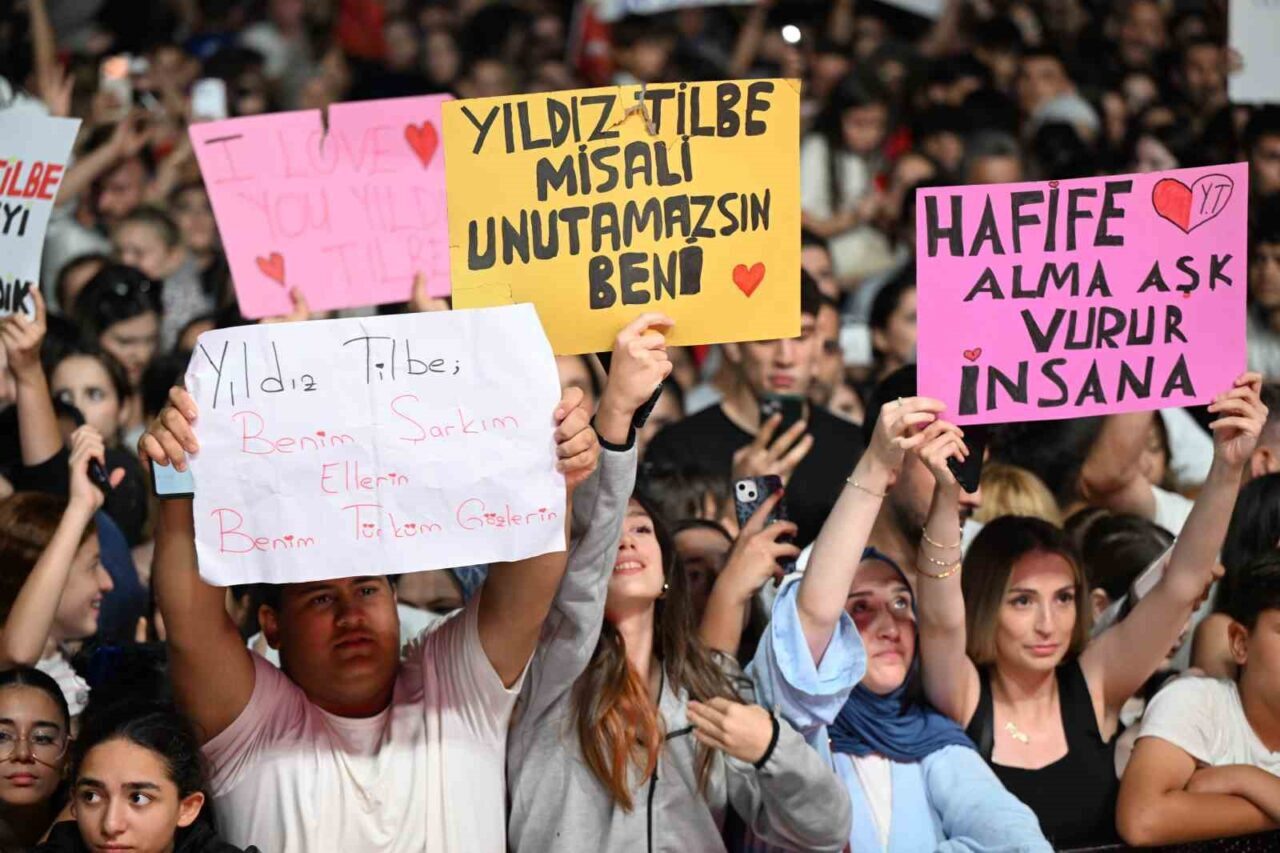 TİLBE
YI
DIK
I LOVE
YOU YILD
TİLBE
YILDIZ TİLBE
MİSALİ
UNUTAMAZSIN
BENİ
HAFİFE
Y.T
ALMA AŞK
VURUR
İNSANA
Yıldız Tilbe;
Benim Şarkım
Ellerin
Benim Türküm Gözlerin